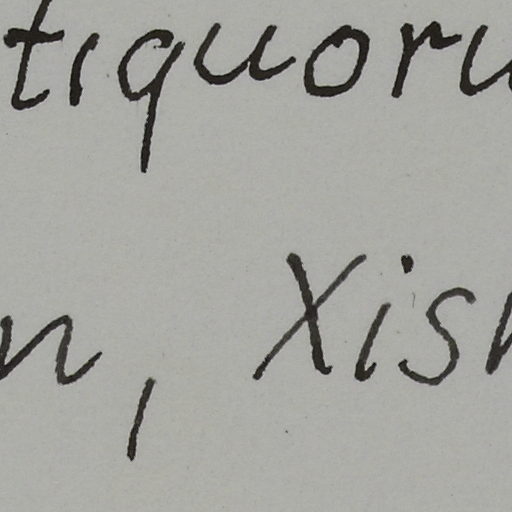 tiquoru
n, Xish